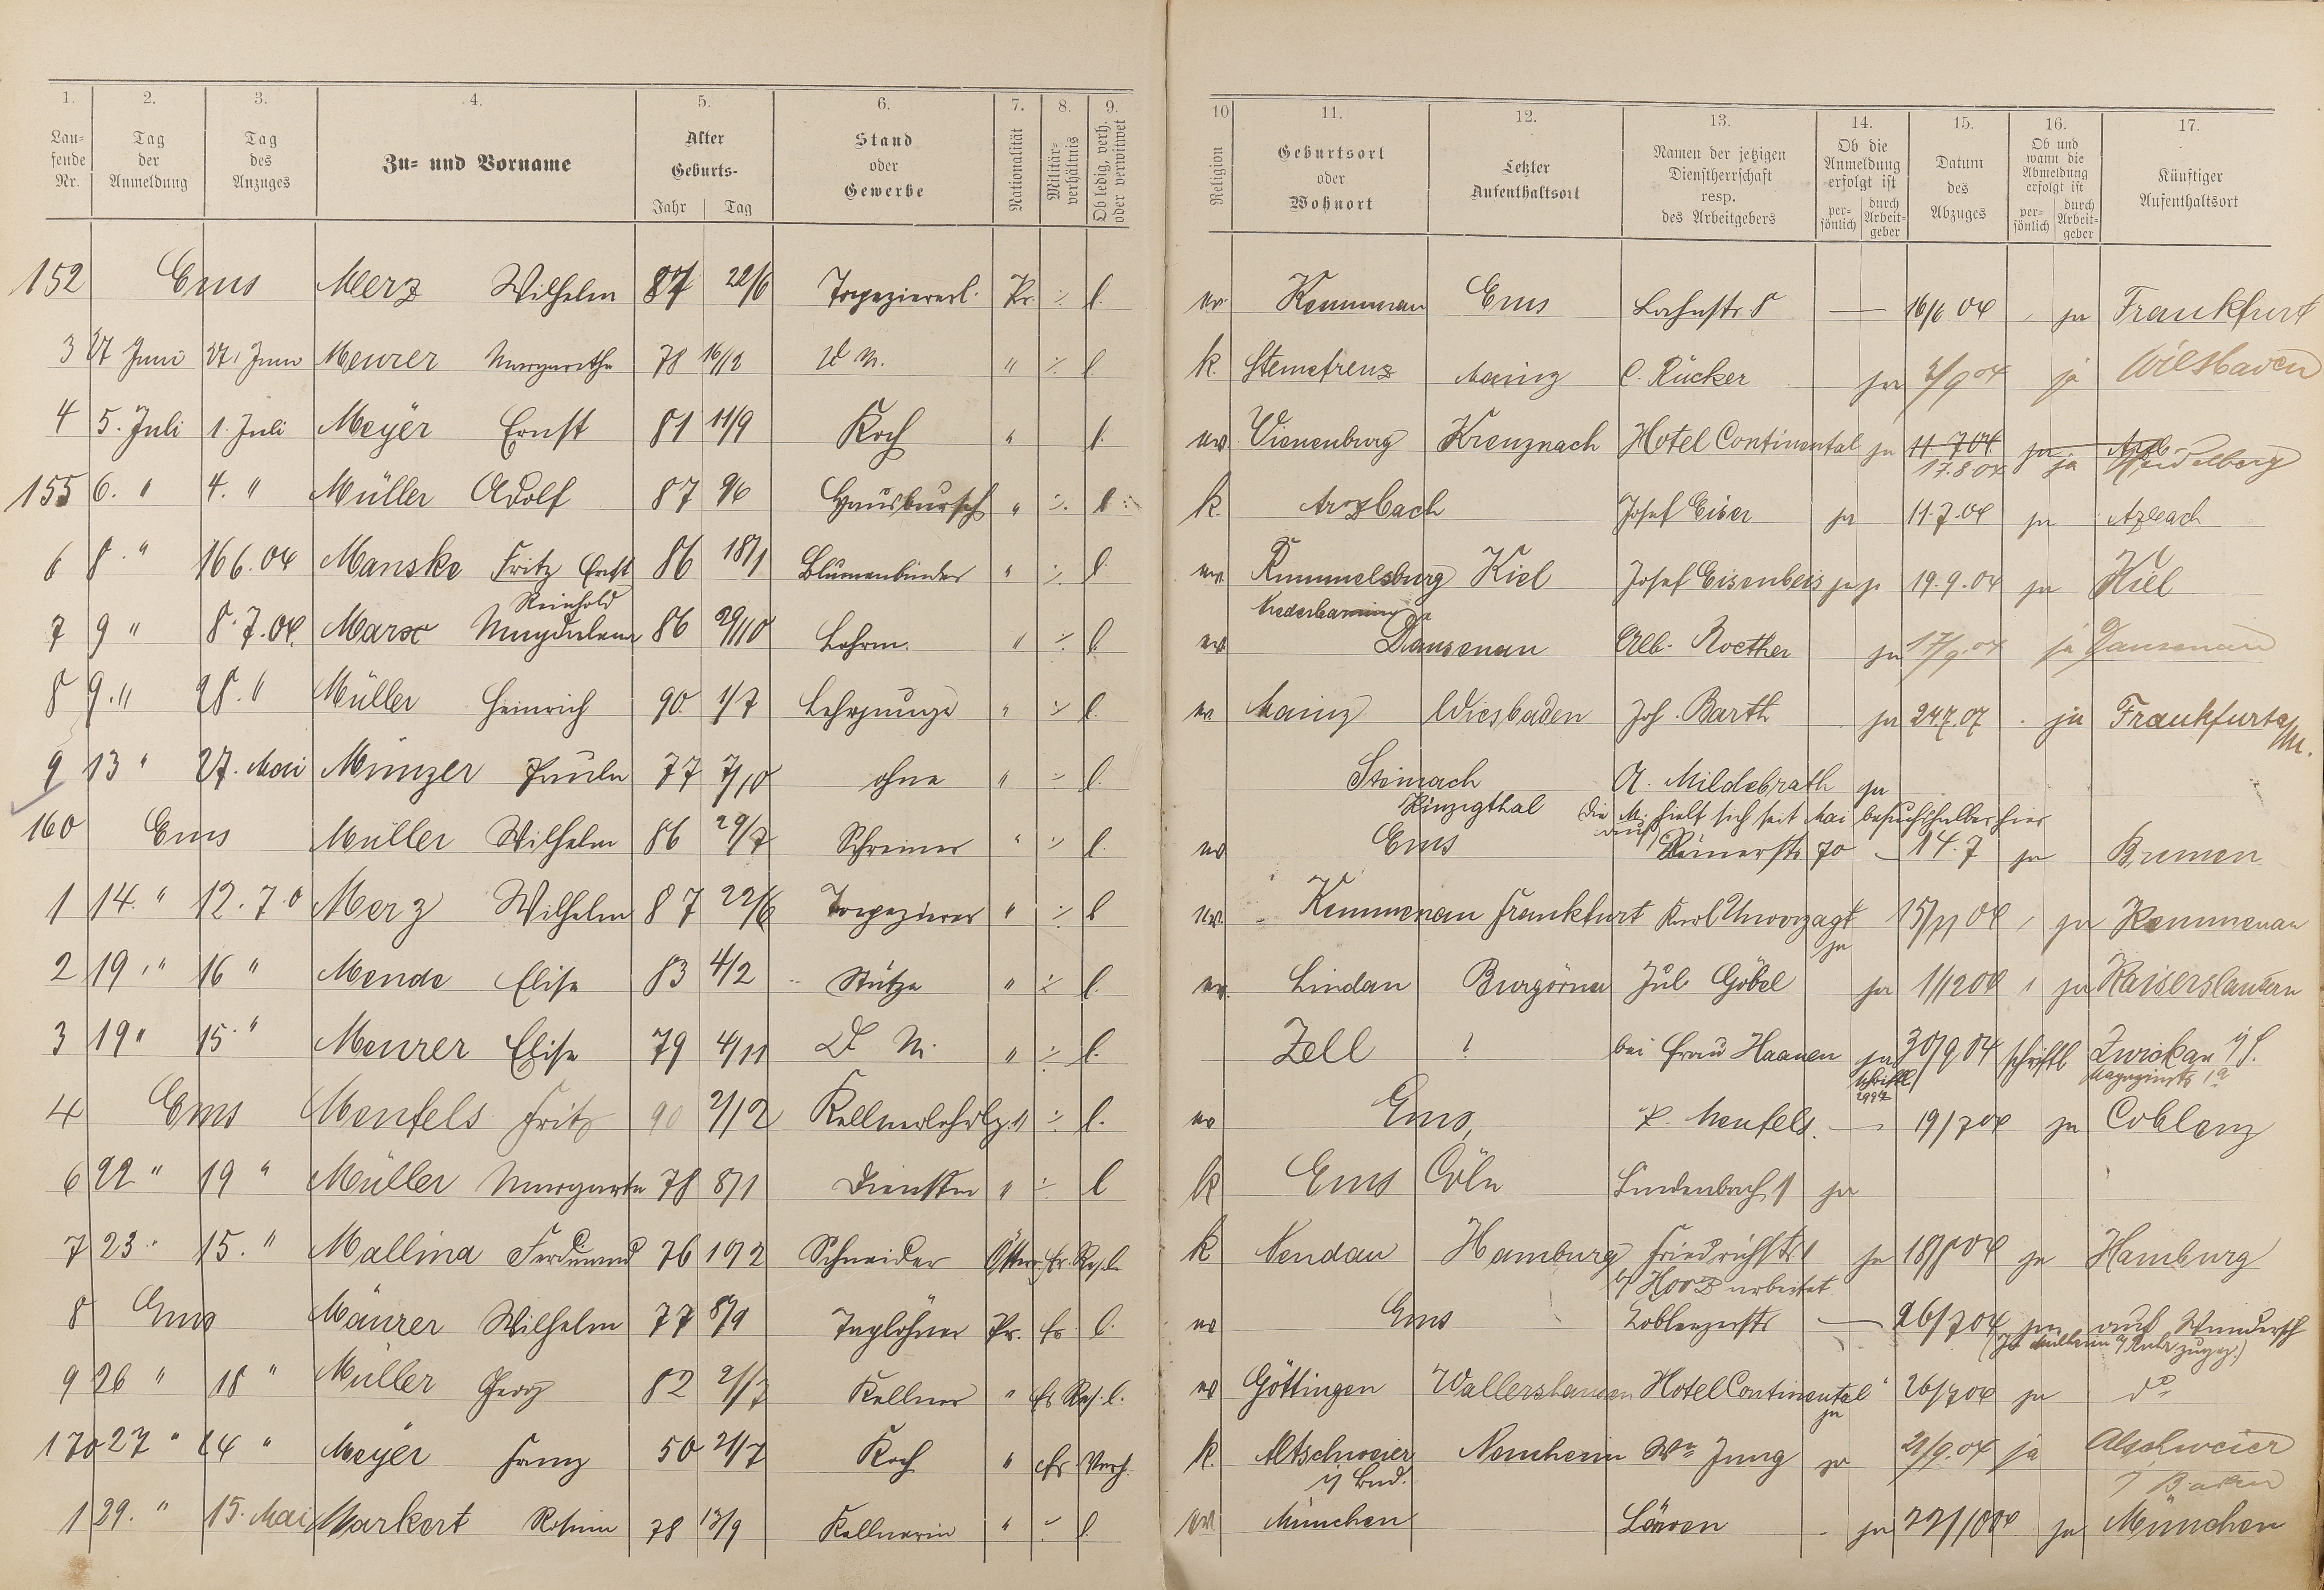 1. 2. 3. 4. 5. 6. 7. 8. 9. 10 11. 12. 13. 14. 15. 16. 17.
Lau-fende Nr. Tag der Anmeldung Tag des Anzuges Zu- und Vorname Alter Geburts- Jahr Tag Stand oder Gewerbe Nationalität Militär-verhältnis Ob ledig, verh. oder verwitwet Religion Geburtsort oder Wohnort Letzter Aufenthaltsort Namen der jetzigen Dienstherrschaft resp. des Arbeitgebers Ob die Anmeldung erfolgt ist per-sönlich durch Arbeit-geber Datum des Abzuges Ob und wann die Abmeldung erfolgt ist per-sönlich durch Arbeit-geber Künftiger Aufenthaltsort
152 Ems Merz Wilhelm 87 22/6 Pr. ./. l. ev. Kemmenau Ems Lahnstr. 8 — 16/6 04 ja Frankfurt
3 27 Juni 27. Juni Meurer Margarethe 78 16/12 D M. " ./. l. k Mainz C. Rücker ja 2/9 04 ja Wiesbaden
4 5. Juli 1. Juli Meyer Ernst 81 11/9 Koch " l. ev Vienenburg Kreuznach Hotel Continental ja 11 7 04. ja
17.8 04 ja Heidelberg
155 6. " 4. " Müller Adolf 87 9/6 Hausbursch " ./. l k. Arzbach Josef Eiser ja 11.7.04 ja Azbach
6 8. " 16 6. 04 Manske Fritz Ernst 86 18/1 Blumenbinder " ./. l ev. Rummelsburg Kiel Josef Eisenbeis ja 19.9.04 ja Kiel
Reinhold Niederbarnim
7 9 " 8.7.04. Marx Magdalena 86 29/10 Lehrm. " ./. l ev Dausenau Alb. Roether ja 17/9.04 ja Dausenau
8 9. " 28. " Müller Heinrich 90. 1/7 Lehrjunge " ./. l. ev Mainz Wiesbaden Joh. Barth ja 24.7.07 ja Frankfurt a/M.
9 13 " 27. Mai Münzer Paula 77 7/10 ohne " ./. l. Steinach A. Mildebrath ja
Kinzigthal Die M. hielt sich seit Mai besuchshalber hier auf
160 Ems Müller Wilhelm 86 29/7 Schreiner " ./. l. ev Ems Römerstr 70 — 14.7 ja Bremen
1 14. " 12.7.0 Merz Wilhelm 87 22/6 Tapezierer " ./. l ev. Kemmenau Frankfurt Karl Unverzagt 15/11 04 ja Kemmenau
ja
2 19. " 16 " Mende Elise 83 4/2 Stütze " ./. l. ev. Lindau Burgörner Jul. Göbel ja 1/12 04 ja Kaiserslautern
3 19 " 15. " Meurer Elise 79 4/11 D M. " ./. l. Zell ? bei Frau Haanen ja 30/9 04 schriftl Zwickau i/S.
schriftl
4 Ems Menfels Fritz 90 2/12 Kellnerlehrlg. " ./. l. ev Ems, P. Menfels. — 19/7 04 ja Coblenz
6 22 " 19 " Müller Margarete 78 8/1 " ./. l k Ems Cöln Lindenbach 1 ja
7 23 " 15. " Mallina Ferdinand 76 19/2 Schneider Östr. Er. Res. l. k Hamburg Friedrichstr 1 ja 18/8 04 ja Hamburg
b/ Horz arbeitet
8 Ems Mäurer Wilhelm 77 8/9 Taglöhner Pr. l. ev Ems Coblenzerstr — 26/7 04 ja auf Wandersch
9 26 " 18 " Müller Georg 82 2/7 Kellner " Res. l. ev Göttingen Wallershausen Hotel Continental 26/7 04 ja do
ja
170 27 " 24 " Meyer Franz 50 21/7 Koch " Verh. k. Altschweier Wm Jung ja 2/9.04 ja Alschweier
i/ Bad. i/ Baden
1 29. " 15. Mai Markert Rosina 78 13/9 Kellnerin " ./. l ev. München Löwen ja 22/10 04 ja München